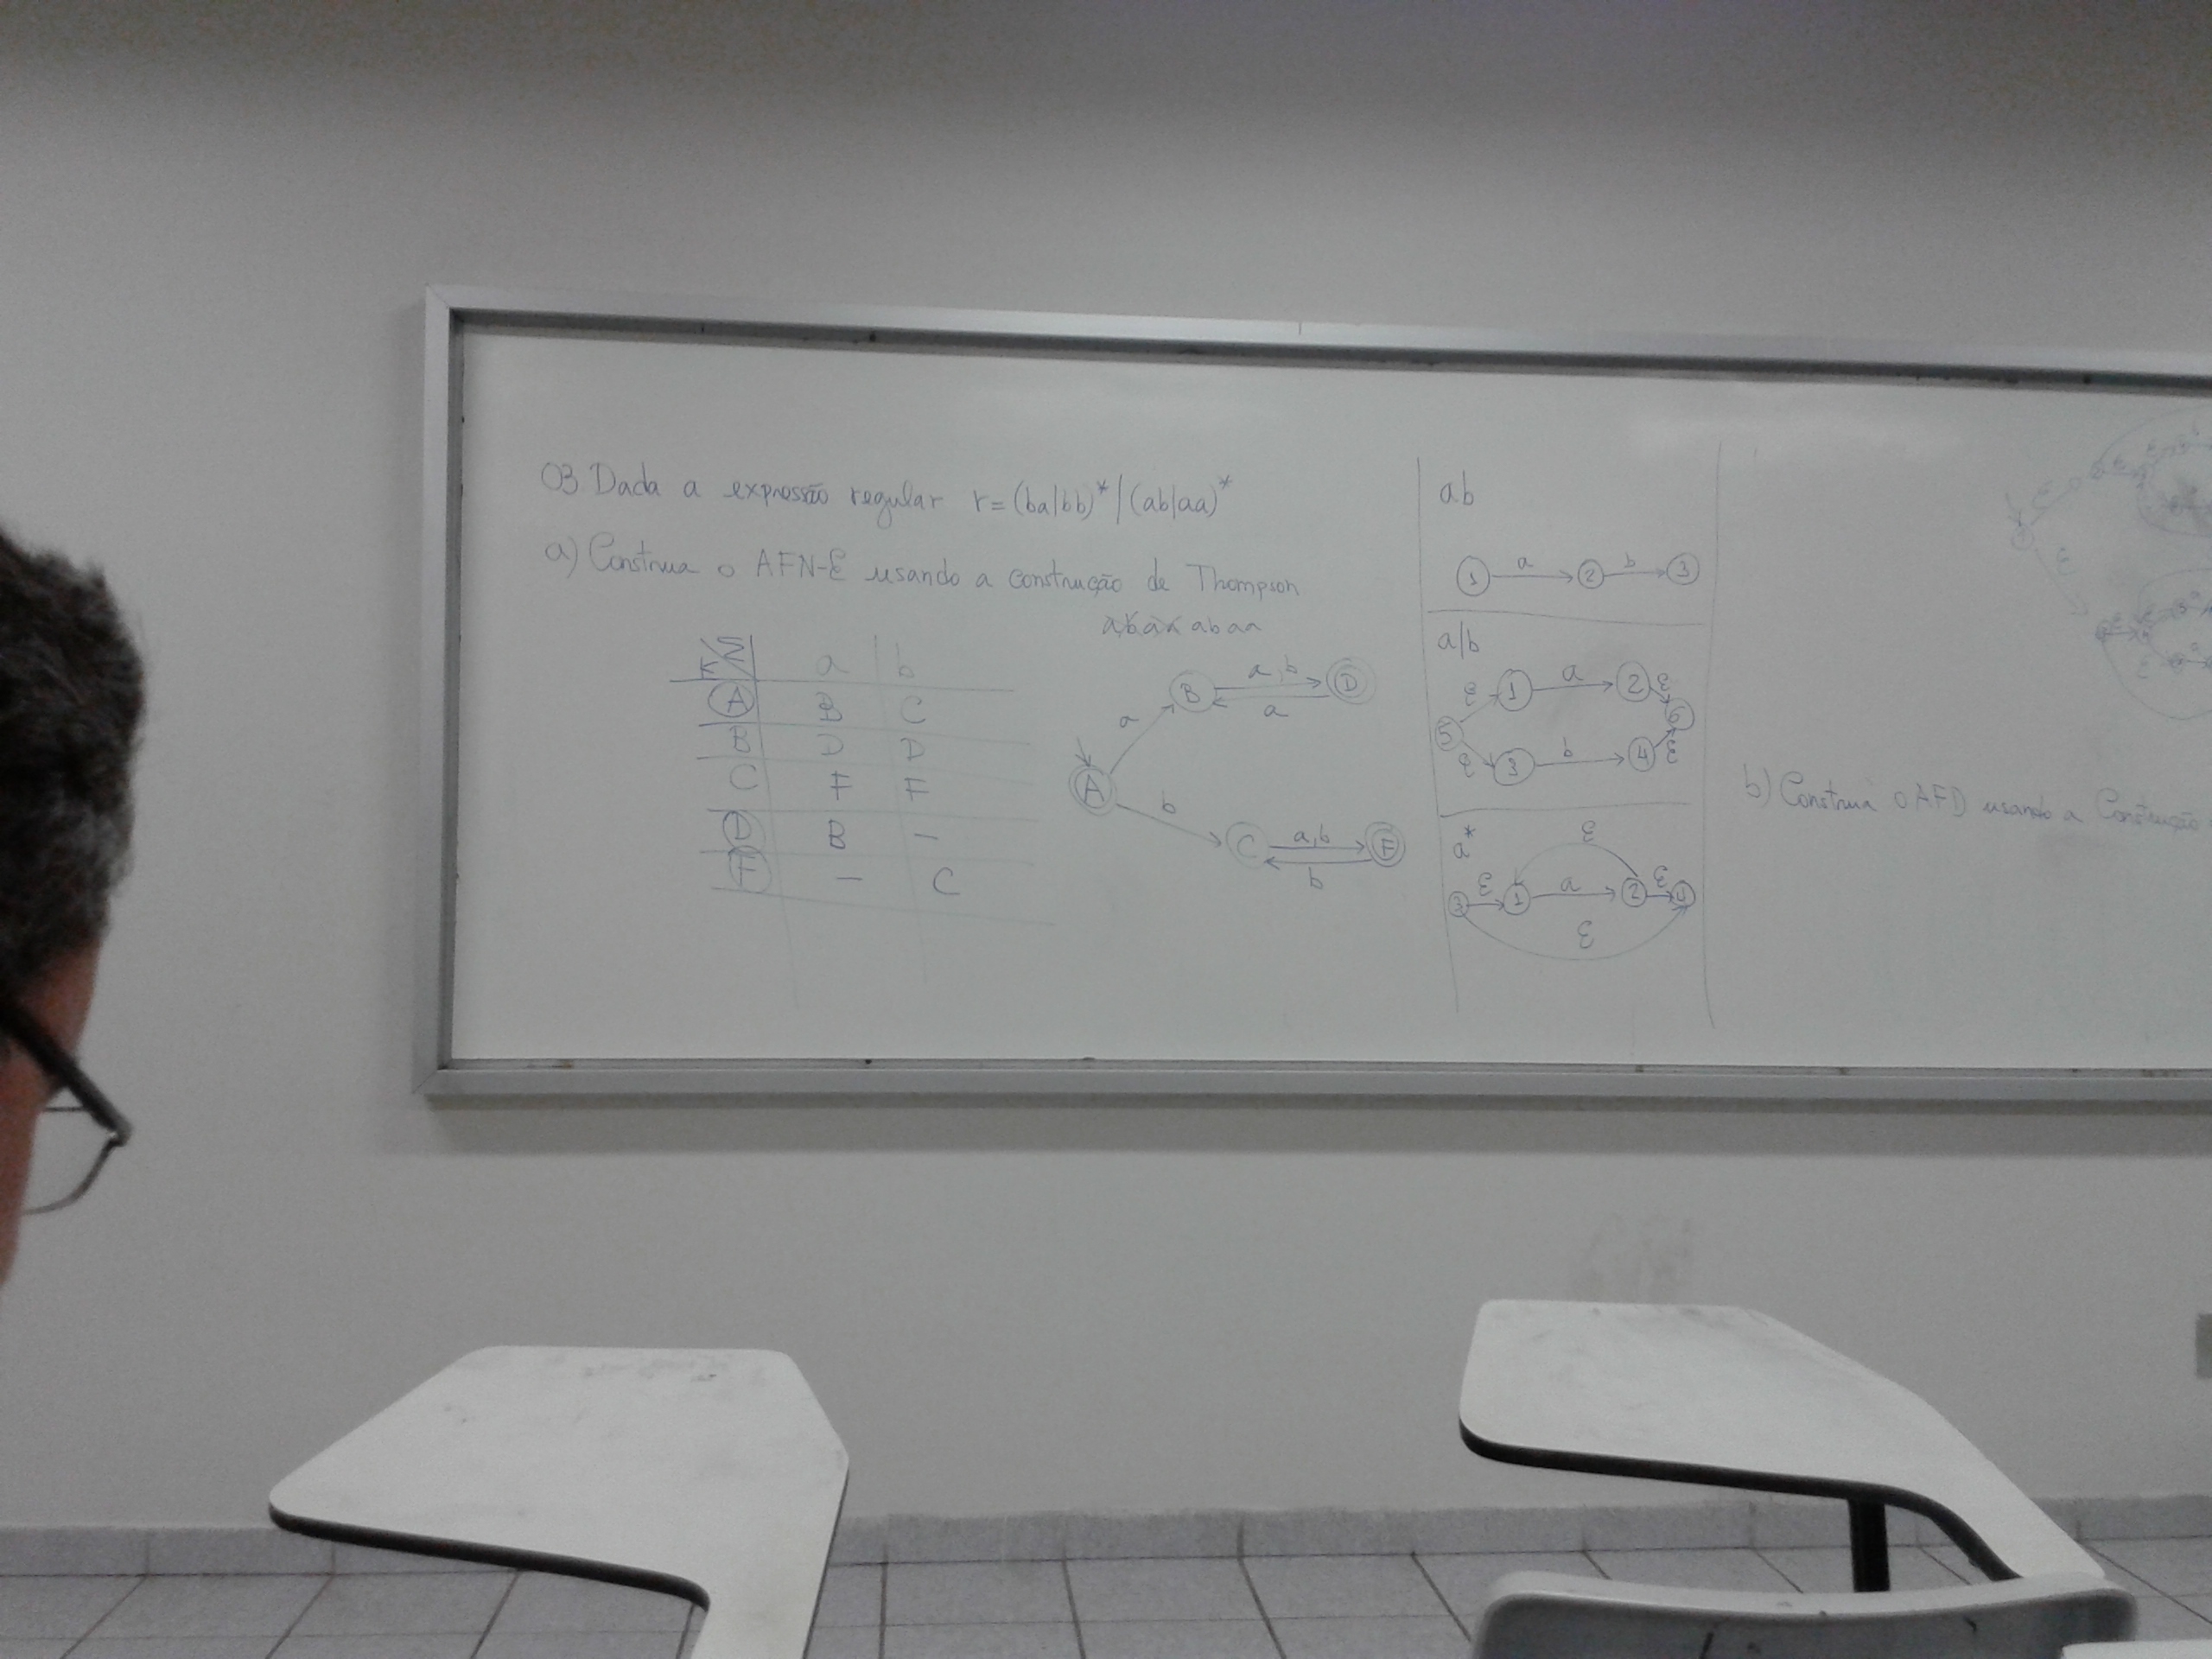 03 Dada a expressão regular r=(ba|bb)*|(ab|aa)*
a) Construa o AFN-ε usando a construção de Thompson
abaa abaa
Σ a b
A B C
B D D
C F F
D B -
F - C
a B a,b D
a
A
b C a,b F
b
ab
1 a 2 b 3
a|b
ε 1 a 2 ε
5 6
ε 3 b 4 ε
a*
ε
3 ε 1 a 2 ε 4
ε
ε
ε
b) Construa o AFD usando a Construção